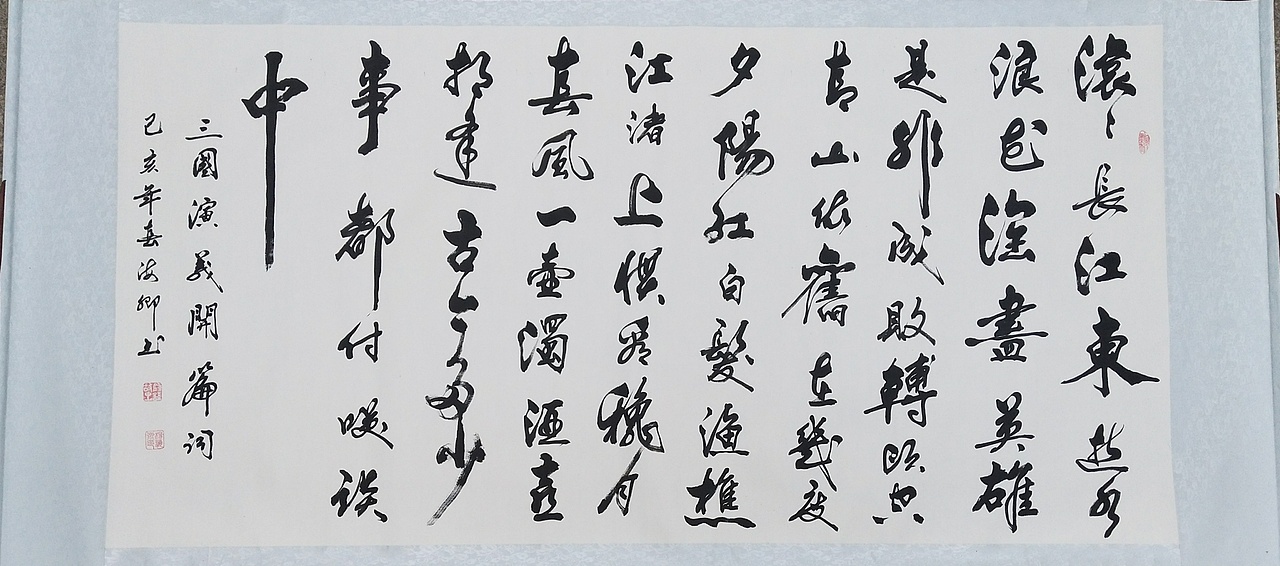 滚〻長江東逝水
浪花淘盡英雄
是非成敗轉頭空
青山依舊在幾度
夕陽紅白髮漁樵
江渚上慣看穐月
春風一壺濁酒喜
相逢古今多少
事都付咲談
中
三國演義開篇詞
己亥年春海卿书